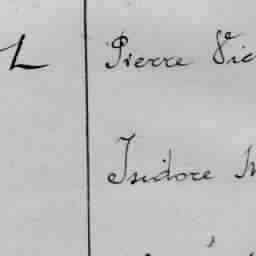 L Pierre Vic
Isidore